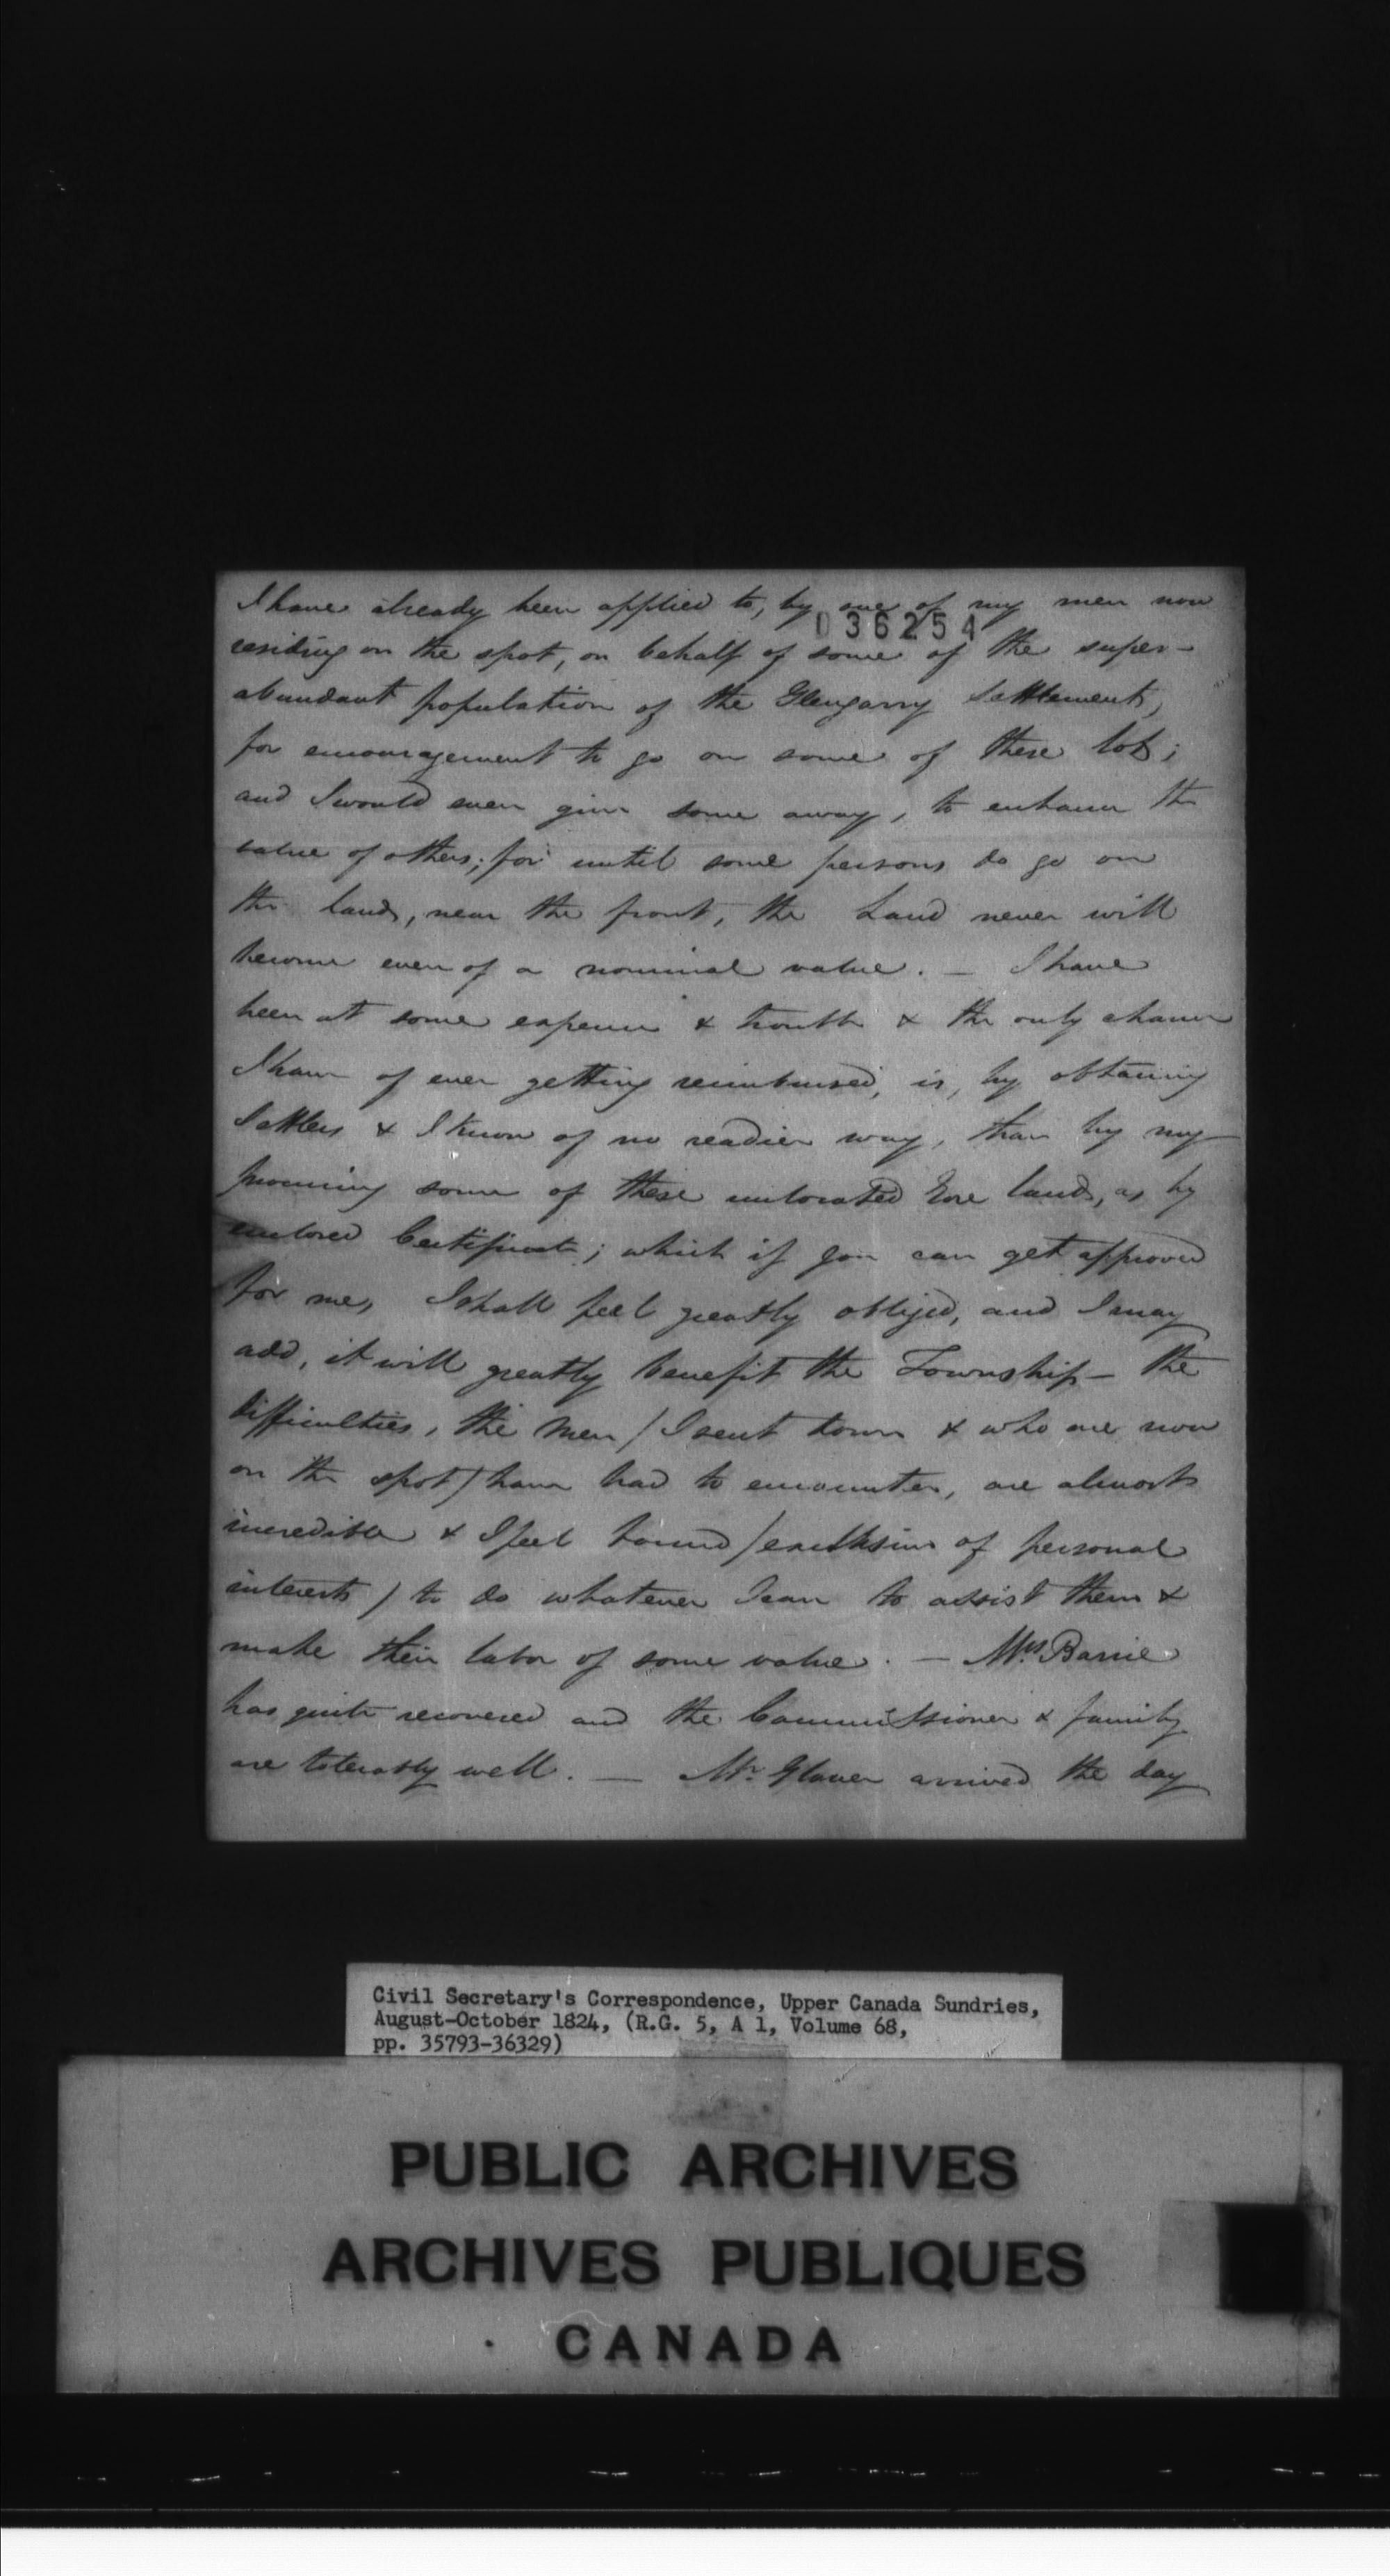 I have already been applied to, by one of my men now
036254
residing on the spot, on behalf of some of the super-
abundant population of the Glengarry Settlements,
for encouragement to go on some of these lots;
and I would even give some away, to enhance the
value of others; for until some persons do go on
the lands, near the front, the Land never will
become even of a nominal value. — I have
been at some expence & trouble & the only chance
I have of ever getting reimbursed, is, by obtaining
Settlers & I know of no readier way, than by my
procuring some of these unlocated lands, as by
enclosed Certificate; which if you can get approved
for me, I shall feel greatly obliged, and I may
add, it will greatly benefit the Township — The
difficulties, the men / I sent down & who are now
on the spot / have had to encounter, are almost
incredible & I feel bound / exclusive of personal
interests / to do whatever I can to assist them &
make their labor of some value. — Mrs. Barrie
has quite recovered and the Commissioner & family
are tolerably well. — Mr. Glover arrived the day
Civil Secretary's Correspondence, Upper Canada Sundries,
August-October 1824, (R.G. 5, A 1, Volume 68,
pp. 35793-36329)
PUBLIC ARCHIVES
ARCHIVES PUBLIQUES
CANADA